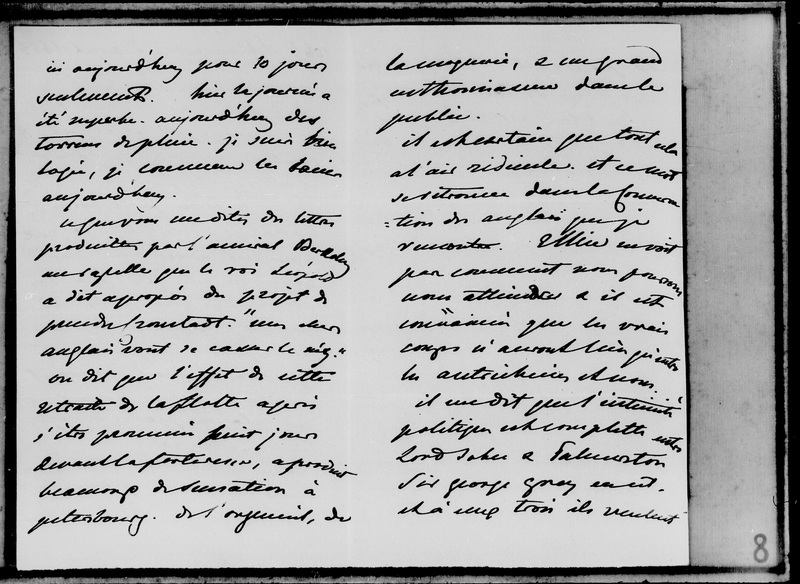 ici aujourd'huy pour 10 jours
seulement. hier la journée a
été superbe. aujourd'huy des
torrens de pluie. je suis bien
logée, je commence les bains
aujourd'huy.
ce que vous me dites des lettres
produittes par l'amiral Berkeley
me rapelle que le roi Léopold
a dit apropos du projet de
prendre Cronstadt. "mes chers
anglais vont se casser le nez."
on dit que l'effet de cette
retraite de la flotte après
s'être promenée huit jours
devant la forteresse, a produit
beaucoup de sensation à
petersbourg. de l'argument, de
la moquerie, & un grand
enthousiasme dans le
public.
il est certain que tout cela
a l'air ridicule. et ce mot
se retrouve dans la conversa
=tion des anglais que je
rencontre. Ellice ne voit
pas comment nous pouvons
nous atteindre & il est
convaincu que les vrais
coups n'auront lieu qu'entre
les autrichiens et nous.
il me dit que l'intimité
politique est complette entre
Lord John & Palmerston
Sir george grey en est.
et à eux trois ils veulent
8